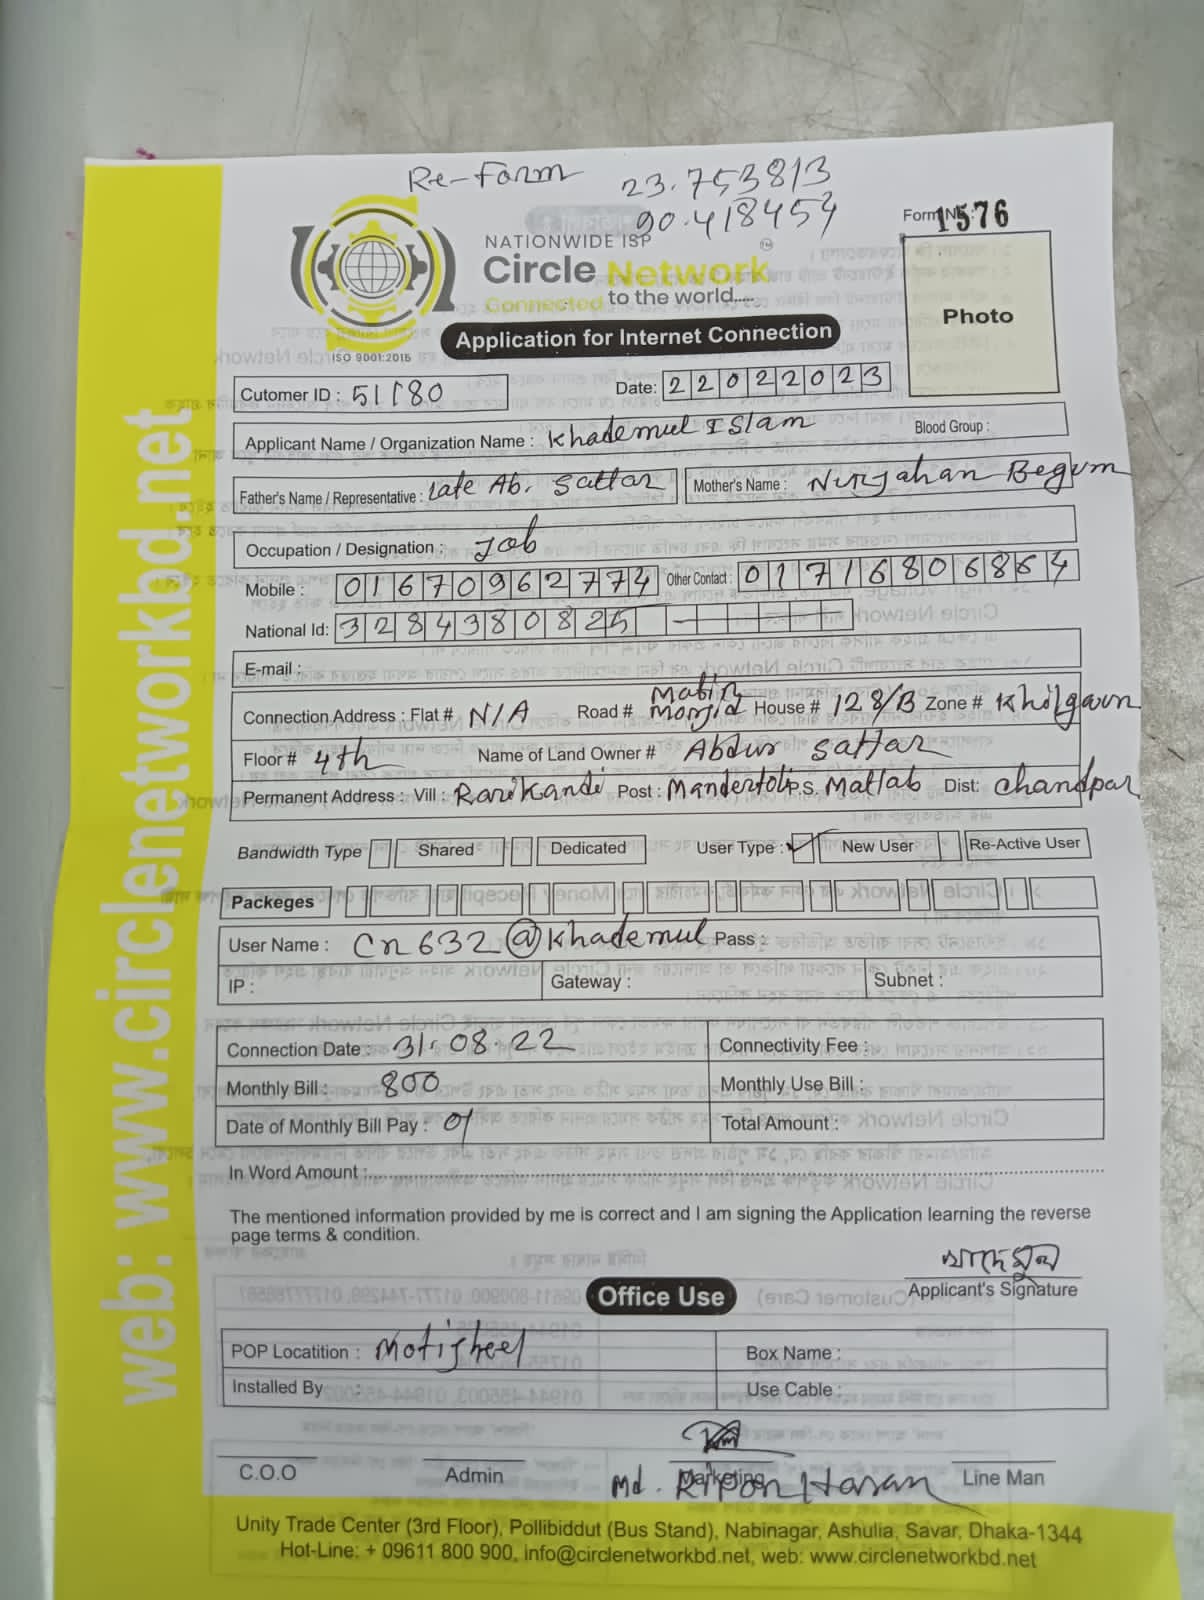 Re-Form 23.753813
90.418454
Form No: 1576
NATIONWIDE ISP
Circle Network TM
Connected to the world.....
ISO 9001:2015
Application for Internet Connection
Photo
Cutomer ID : 51180 Date: 22022023
Applicant Name / Organization Name : Khademul Islam Blood Group :
Father's Name / Representative : Late Ab. Sattar Mother's Name : Nurjahan Begum
Occupation / Designation : Job
Mobile : 01670962774 Other Contact : 01716806864
National Id: 3284380825
E-mail :
Connection Address : Flat # N/A Road # Matir Monjid House # 128/B Zone # Khilgaon
Floor # 4th Name of Land Owner # Abdur Sattar
Permanent Address : Vill : Rarikandi Post : P.S. Matlab Dist: Chandpur
Bandwidth Type Shared Dedicated User Type : ✓ New User Re-Active User
Packeges
User Name : Cn632@Khademul Pass :
IP : Gateway : Subnet :
Connection Date : 31.08.22 Connectivity Fee :
Monthly Bill : 800 Monthly Use Bill :
Date of Monthly Bill Pay : 01 Total Amount :
In Word Amount :
The mentioned information provided by me is correct and I am signing the Application learning the reverse
page terms & condition.
Applicant's Signature
Office Use
POP Locatition : Motijheel Box Name :
Installed By : Use Cable :
C.O.O Admin Marketing Line Man
Md. Ripon Hasan
Unity Trade Center (3rd Floor), Pollibiddut (Bus Stand), Nabinagar, Ashulia, Savar, Dhaka-1344
Hot-Line: + 09611 800 900, info@circlenetworkbd.net, web: www.circlenetworkbd.net
web: www.circlenetworkbd.net